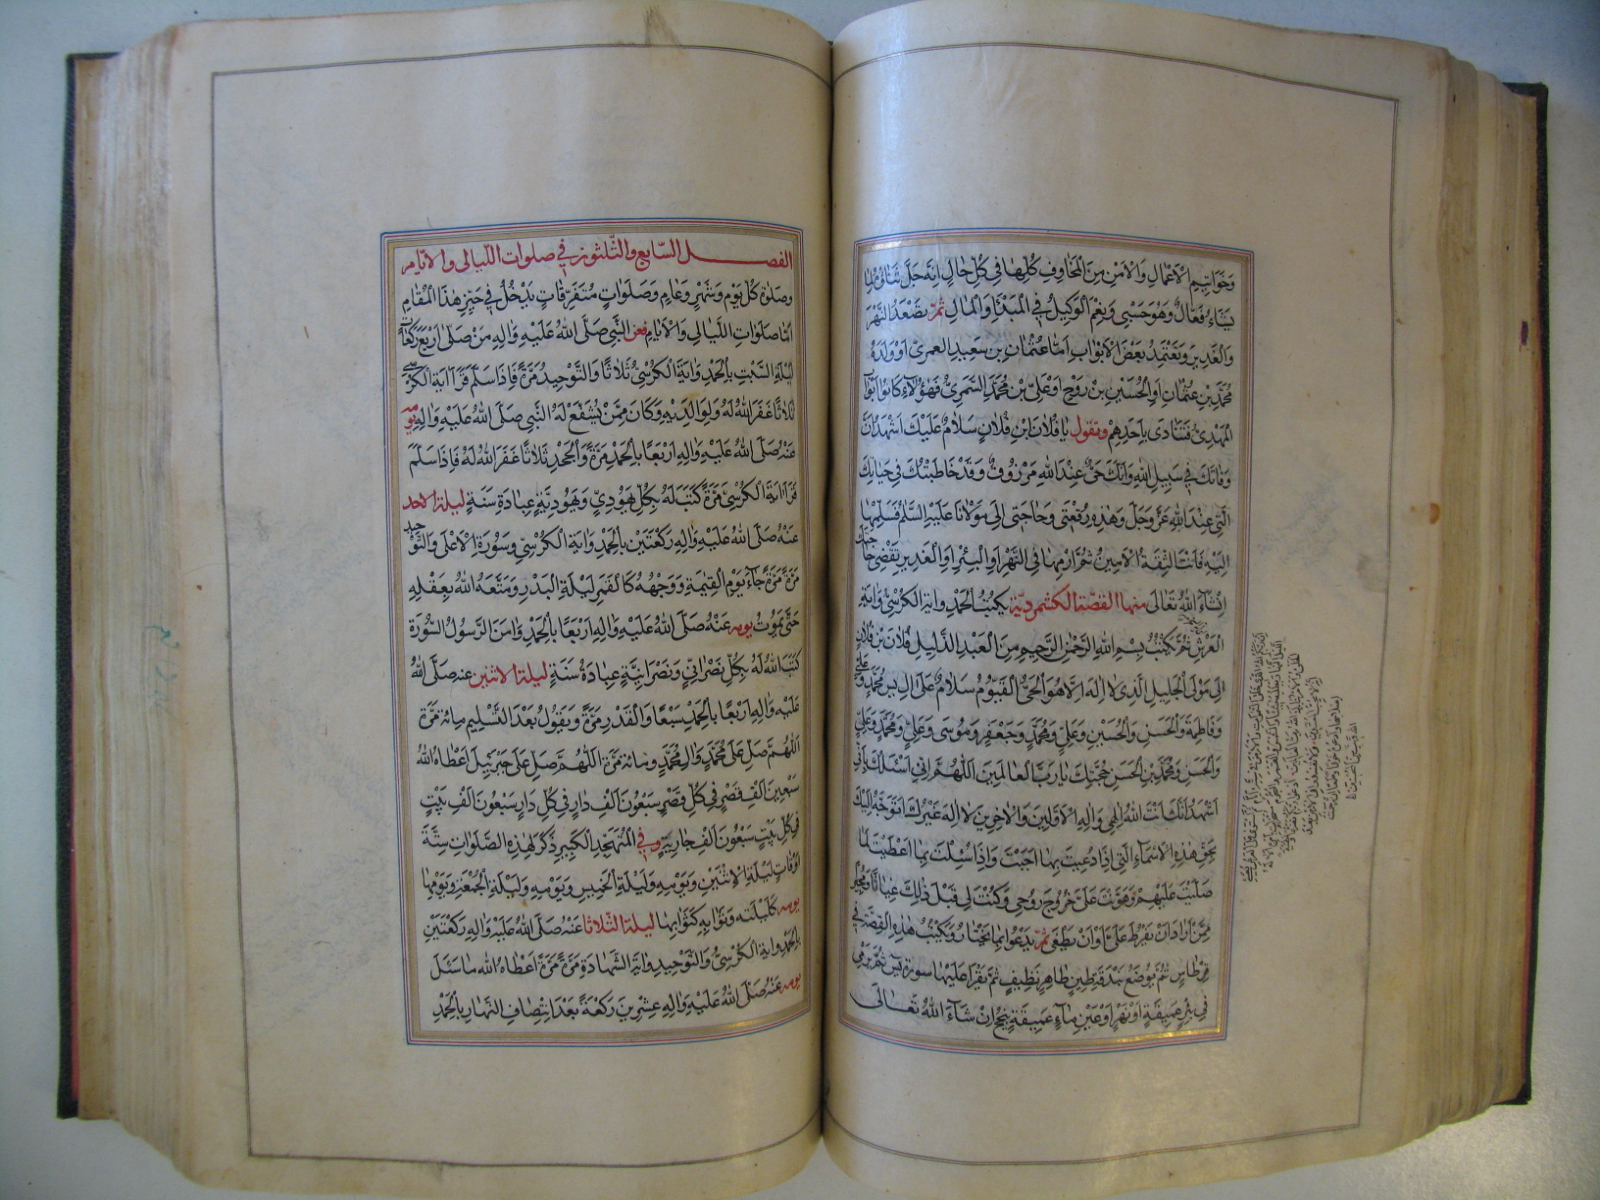 وَخَواتيمِ الاَعْمالِ وَالاَمْنِ مِنَ المَخاوِفِ كُلِّها في كُلِّ حالٍ اِنَّهُ جَلَّ ثَناؤُهُ لِما
يَشاءُ فَعّالٌ وَهُوَ حَسْبي وَنِعْمَ الوَكيلُ في المَبْدَءِ وَالمَالِ ثُمَّ تَصْعَدُ النَّهْرَ
وَالغَديرَ وَتَعْتَمِدُ بَعْضَ الاَبْوابِ اَمّا عُثْمانَ بنِ سَعيدِ العَمرى اَوْ وَلَدَهُ
مُحَمَّدَ بْنَ عُثْمانَ اَوِ الحُسَيْنَ بنَ رَوْحٍ اَوْ عَلِيَّ بْنَ مُحَمَّدٍ السَّمَرِيَّ فَهؤُلاءِ كانُوا اَبْوابَ
المَهْدِيِّ فَتُنادى بِاَحَدِهِمْ وتقول يا فُلانَ ابْنَ فُلانٍ سَلامٌ عَلَيْكَ اَشْهَدُ اَنَّ
وَفاتَكَ في سَبيلِ اللهِ وَاَنَّكَ حَيٌّ عِنْدَ اللهِ مَرْزُوقٌ وَقَدْ خاطَبْتُكَ في حَياتِكَ
الَّتي عِنْدَ اللهِ عَزَّ وَجَلَّ وَهذِهِ رُقْعَتي وَحاجَتي اِلى مَوْلانا عَلَيْهِ السَّلامُ فَسَلِّمْها
اِلَيْهِ فَاَنْتَ الثِّقَةُ الاَمينُ ثُمَّ ارْمِها في النَّهْرِ اَوِ البِئْرِ اَوِ الغَديرِ تُقْضى حاجَتُكَ
اِنْشاءَ اللهُ تَعالى منها القصّة الكشمرديّة يَكْتُبُ الحَمْدَ وايَةَ الكُرْسيِّ وَايَةَ
العَرْشِ ثُمَّ تَكْتُبُ بِسْمِ اللهِ الرَّحْمنِ الرَّحيمِ مِنَ العَبْدِ الذَّليلِ فُلانِ بْنِ فُلانٍ
اِلى مَوْلى الجَليلِ الَّذى لا اِلهَ اِلاّ هُوَ الحَيُّ القَيُّومُ سَلامٌ عَلى الِ يس مُحَمَّدٍ وعَلِيٍّ
وَفاطِمَةَ وَالحَسَنِ وَالحُسَيْنِ وَعَلِيٍّ وَمُحَمَّدٍ وَجَعْفَرٍ وَمُوسى وَعَلِيٍّ وَمُحَمَّدٍ وَعَلِيٍّ
وَالحَسَنِ وَمُحَمَّدِ بْنِ الحَسَنِ حُجَّتِكَ يا رَبَّ العالَمينَ اَللّهُمَّ اِنّي اَسْئَلُكَ بِاَنّي
اَشْهَدُ اَنَّكَ اَنْتَ اللهُ اِلهي وَاِلهُ الاَوَّلينَ وَالاخِرينَ لا اِلهَ غَيْرُكَ اَتَوَجَّهُ اِلَيْكَ
بِحَقِّ هذِهِ الاَسْماءِ الَّتي اِذا دُعيتَ بِها اَجَبْتَ وَاِذا سُئِلْتَ بِها اَعْطَيْتَ لَمّا
صَلَّيْتَ عَلَيْهِمْ وَهَوَّنْتَ عَلَيَّ خُرُوجَ رُوحي وَكُنْتَ لي قَبْلَ ذلِكَ غِياثًا وَمُجيرًا
مِمَّنْ اَرادَ اَنْ يَفْرُطَ عَلَيَّ اَوْ اَنْ يَطْغى ثُمَّ يَدْعُوا بِما يَخْتارُ وَتَكْتُبُ هذِهِ القِصَّةَ في
قِرْطاسٍ ثُمَّ يُوضَعُ في بُنْدُقَةِ طينٍ طاهِرٍ نَظيفٍ ثُمَّ يَقْرَأُ عَلَيْها سورة يس ثُمَّ يَرْمي
في بِئْرٍ عَميقَةٍ اَوْ نَهْرٍ اَوْ عَيْنِ ماءٍ عَميقَةٍ يَنْجَحُ اِنْ شاءَ اللهُ تَعالى
الفصل السّابع والثّلثون في صلوات اللّيالى والايّام
وصَلوةِ كُلِّ يَوْمٍ وَشَهْرٍ وَعامٍ وَصَلَواتٍ مُتَفَرِّقاتٍ يَدْخُلُ في حَيِّزِ هذَا المَقامِ
اَمّا صَلَواتُ اللَّيالى وَالاَيّامِ فعن النَّبي صَلَّى اللهُ عَلَيْهِ وَالِهِ مَنْ صَلّى اَرْبَعَ رَكَعاتٍ
لَيْلَةَ السَّبْتِ بِالحَمْدِ وَايَةَ الكُرْسيِّ ثَلاثًا وَالتَّوْحيدُ مَرَّةً فَاِذا سَلَّمَ قَرَأَ ايَةَ الكُرْسي
ثَلاثًا غَفَرَ اللهُ لَهُ وَلِوالِدَيْهِ وَكانَ مِمَّنْ يَشْفَعُ لَهُ النَّبي صَلَّى اللهُ عَلَيْهِ وَالِهِ يومه
عَنْهُ صَلَّى اللهُ عَلَيْهِ وَالِهِ اَرْبَعًا بِالحَمْدِ مَرَّةً وَالجَحْدِ ثَلاثًا غَفَرَ اللهُ لَهُ فَاِذا سَلَّمَ
قَرَأَ ايَةَ الكُرْسيِّ مَرَّةً كُتِبَ لَهُ بِكُلِّ يَهُوديٍّ وَيَهُودِيَّةٍ عِبادَةَ سَنَةٍ ليلة الاحد
عَنْهُ صَلَّى اللهُ عَلَيْهِ وَالِهِ رَكْعَتَيْنِ بِالحَمْدِ وَايَةَ الكُرْسيِّ وَسُورَةِ الاَعْلى وَالتَّوْحيد
مَرَّةً مَرَّةً جاءَ يَوْمَ القِيمَةِ وَوَجْهُهُ كَالقَمَرِ لَيْلَةَ البَدْرِ وَمَتَّعَهُ اللهُ بِعَقْلِهِ
حَتّى يَمُوتَ يومه عَنْهُ صَلَّى اللهُ عَلَيْهِ وَالِهِ اَرْبَعًا بِالحَمْدِ وَامَنَ الرَّسُولُ السُّورَةَ
كَتَبَ اللهُ لَهُ بِكُلِّ نَصْرانيٍّ وَنَصْرانِيَّةٍ عِبادَةَ سَنَةٍ ليلة الاثنين عنه صَلَّى اللهُ
عَلَيْهِ وَالِهِ اَرْبَعًا بِالحَمْدِ سَبْعًا وَالقَدْرِ مَرَّةً وَيَقُولُ بَعْدَ التَّسْليمِ مِائَةَ مَرَّةٍ
اَللّهُمَّ صَلِّ عَلى مُحَمَّدٍ وَالِ مُحَمَّدٍ وَمِائَةَ مَرَّةٍ اَللّهُمَّ صَلِّ عَلى جَبْرَئيلَ اَعْطاهُ اللهُ
سَبْعينَ اَلْفَ قَصْرٍ في كُلِّ قَصْرٍ سَبْعُونَ اَلْفَ دارٍ في كُلِّ دارٍ سَبْعُونَ اَلْفَ بَيْتٍ
في كُلِّ بَيْتٍ سَبْعُونَ اَلْفَ جارِيَةٍ وفي المُتَهَجِّدِ الكَبيرِ ذَكَرَ لِهذِهِ الصَّلَواتِ سِتَّةَ
اَوْقاتٍ لَيْلَةَ الاِثْنَيْنِ وَيَوْمِهِ وَلَيْلَةَ الخَميسِ وَيَوْمِهِ وَلَيْلَةَ الجُمْعَةِ وَيَوْمِها
يومه كَلَيْلَتِه وَثَوابِهِ كَثَوابِها ليلة الثّلاثا عَنْهُ صَلَّى اللهُ عَلَيْهِ وَالِهِ رَكْعَتَيْنِ
بِالحَمْدِ وايَةَ الكُرْسيِّ وَالتَّوْحيدِ وَايَةَ الشَّهادَةِ مَرَّةً مَرَّةً اَعْطاهُ اللهُ ما سَئَلَ
يومه عَنْهُ صَلَّى اللهُ عَلَيْهِ وَالِهِ عِشْرينَ رَكْعَةً بَعْدَ انْتِصافِ النَّهارِ بِالحَمْدِ